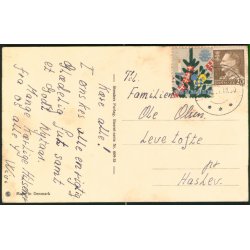 Kære alle!
I ønskes alle en rigtig
Glædelig Jul samt
et Godt Nytaar.
Mange kærlige Hilsner
til
Familien
Ole Olsen.
Leve tofte
pr
Haslev.
Made in Denmark